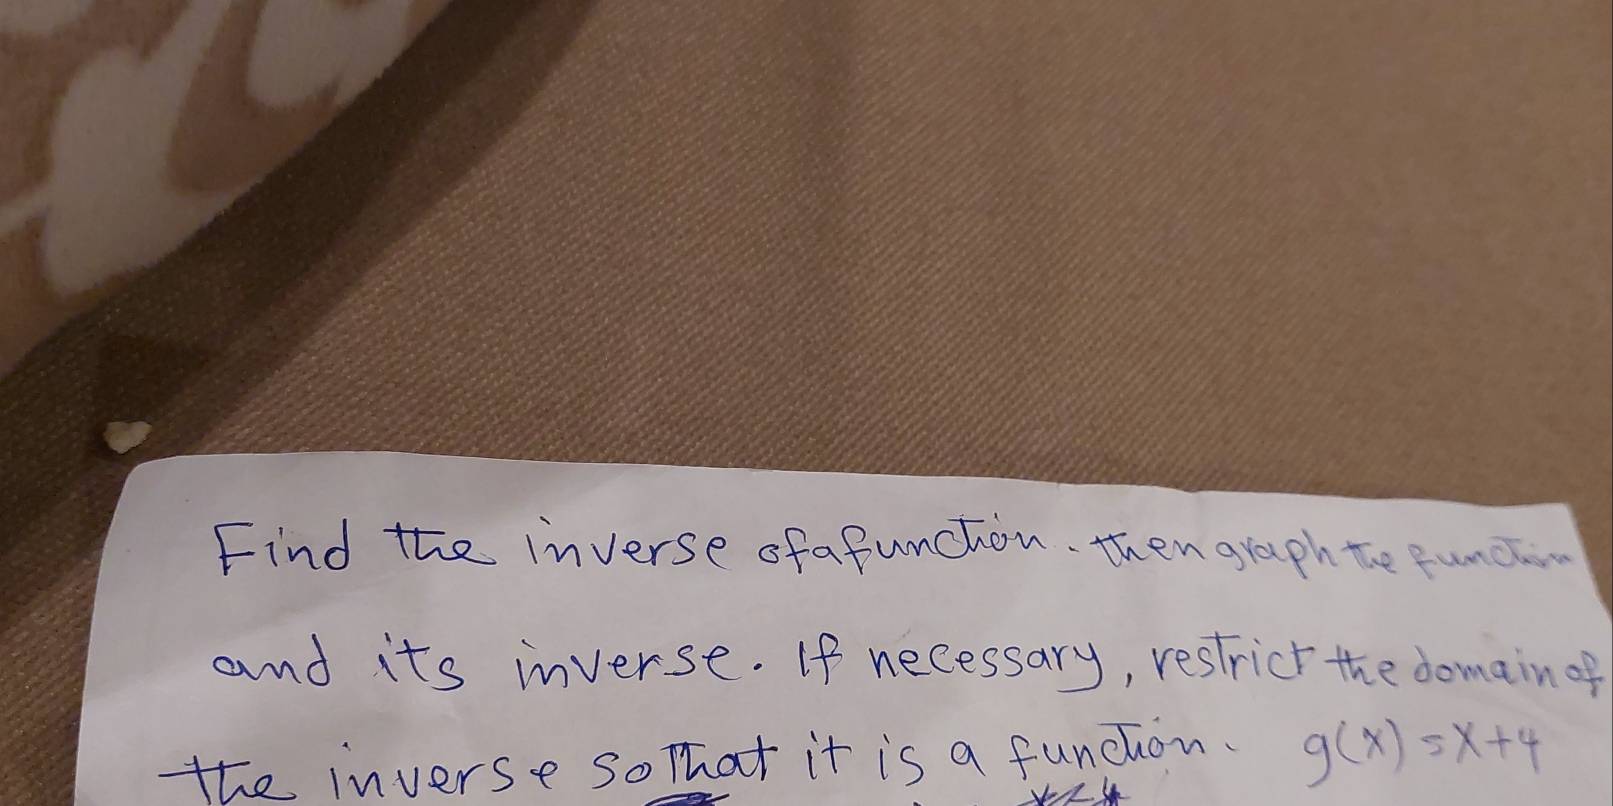 Find the inverse of a function. then graph the function
and its inverse. If necessary, restrict the domain of
the inverse so that it is a function. g(x) = x+4